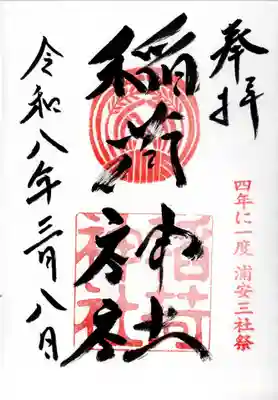 奉拝
四年に一度 浦安三社祭
稲荷
神社
稲荷
神社
令和八年三月八日